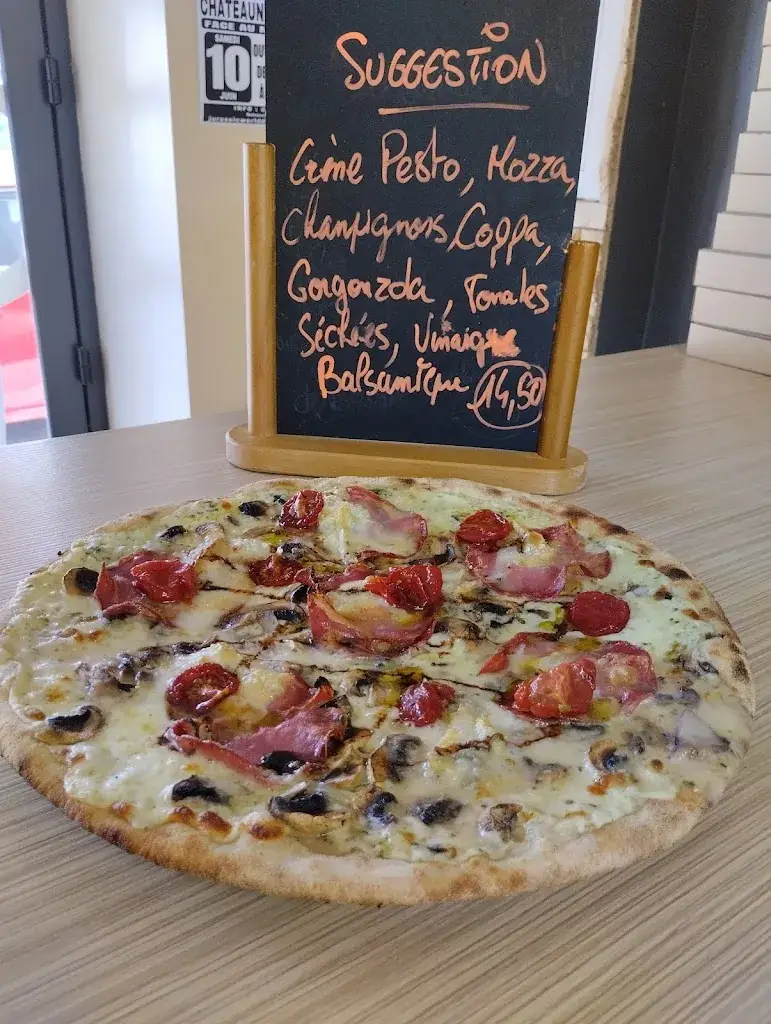 CHATEAUN
FACE AU
SAMEDI
10
JUIN
SUGGESTION
Crème Pesto, Mozza,
Champignons, Coppa,
Gorgonzola, Tomates
Séchées, Vinaigre
Balsamique 14,50